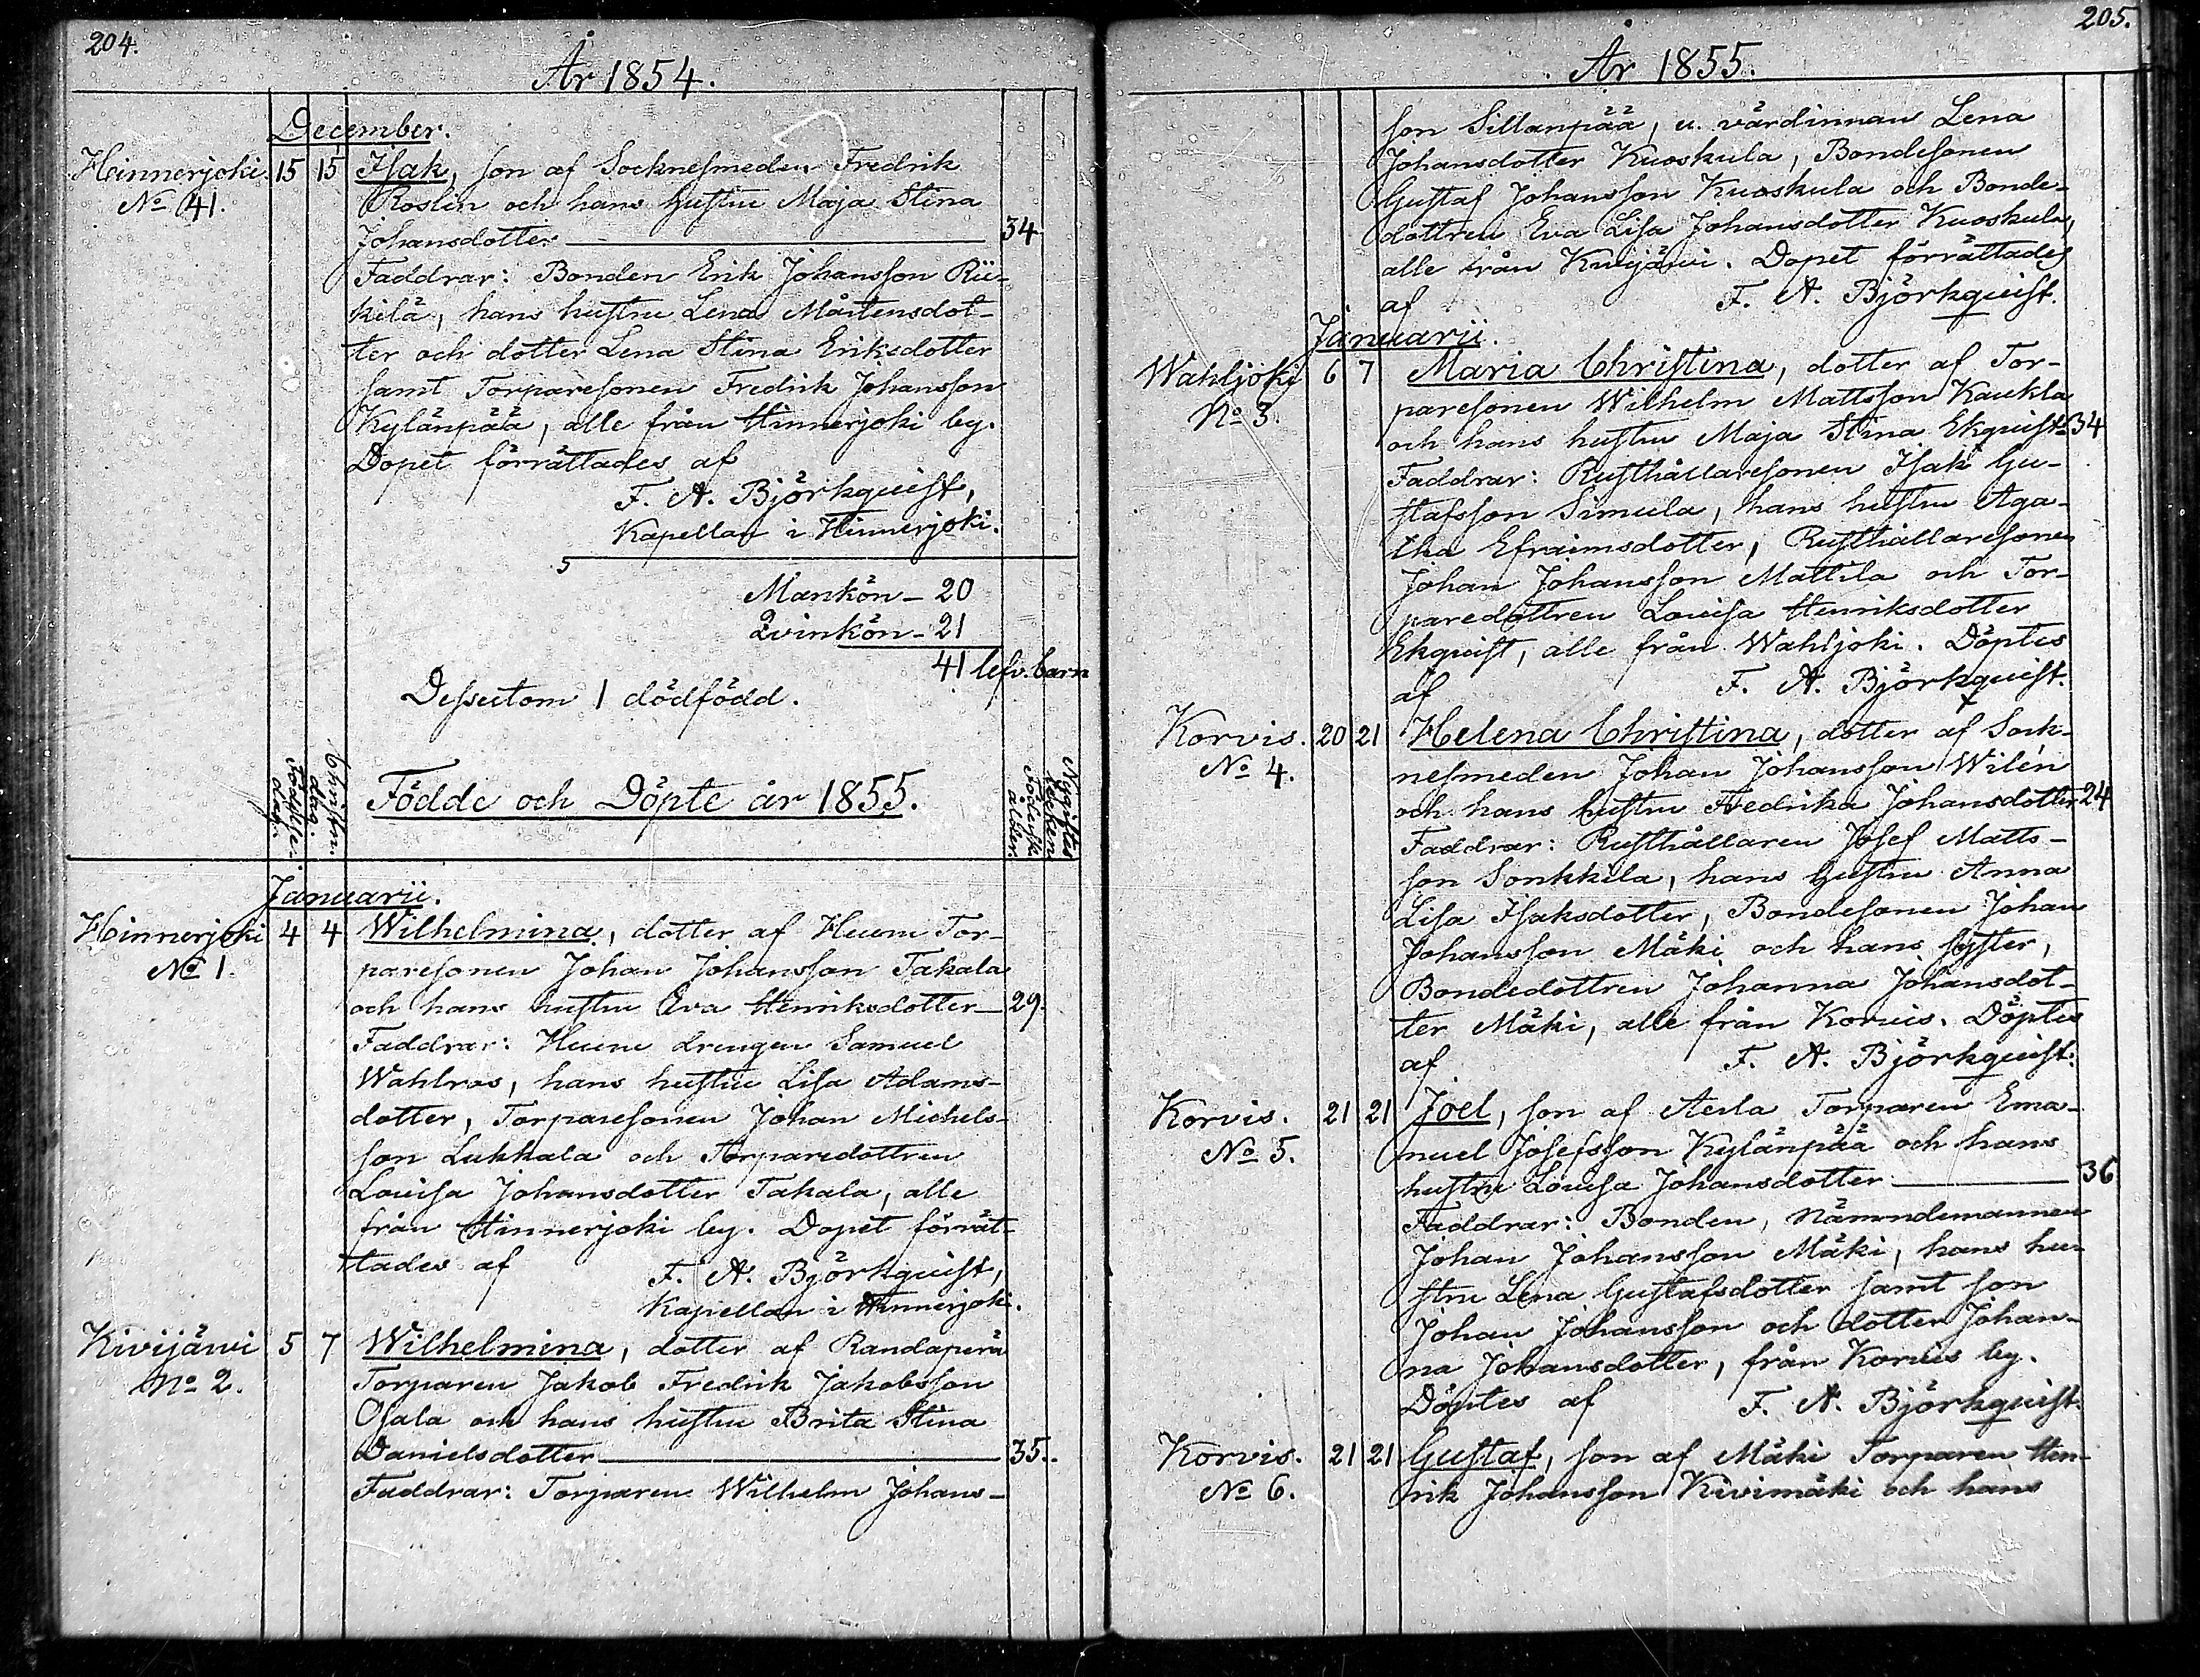 204.
År 1854.
December.
Hinnerjoki 15 15 Isak, son af Socknesmeden Fredrik
No 41. Roslin och hans hustru Maja Stina
Johansdotter 34
Faddrar: Bonden Erik Johansson Rii-
kilä, hans hustru Lena Mårtensdot-
ter och dotter Lena Stina Eriksdotter
samt Torparesonen Fredrik Johansson
Kylänpää, alle från Hinnerjoki by.
Dopet förrättades af
F. A. Björkquist,
Kapellan i Hinnerjoki.
5
Mankön - 20
Qvinkön - 21
41 lefv. barn
Dessutom 1 dödfödd.
Födelse-
dag.
Christn.
dag.
Födde och Döpte år 1855.
Januarii.
Hinnerjoki 4 4 Wilhelmina, dotter af Heum Tor-
No 1. paresonen Johan Johansson Takala
och hans hustru Eva Henriksdotter 29.
Faddrar: Heum drengen Samuel
Wahlros, hans hustru Lisa Adams-
dotter, Torparesonen Johan Michels-
son Lukkala och Torparedottren
Lovisa Johansdotter Takala, alle
från Hinnerjoki by. Dopet förrät-
tades af
F. A. Björkquist,
Kapellan i Hinnerjoki.
Kivijärvi 5 7 Wilhelmina, dotter af Randaperä
No 2. Torparen Jakob Fredrik Jakobsson
Osala och hans hustru Brita Stina
Danielsdotter 35.
Faddrar: Torparen Wilhelm Johans-
205.
År 1855.
son Sillanpää, u. värdinnan Lena
Johansdotter Kuoskula, Bondesonen
Gustaf Johansson Kuoskula och Bonde-
dottren Eva Lisa Johansdotter Kuoskula,
alle från Kivijärvi. Dopet förrättades
af F. A. Björkquist.
Januarii.
Wahljoki 6 7 Maria Christina, dotter af Tor-
No 3. paresonen Wilhelm Mattsson Kaukla
och hans hustru Maja Stina Ekquist 34
Faddrar: Rusthållaresonen Isak Gu-
stafsson Simula, hans hustru Aga-
tha Efraimsdotter, Rusthållaresonen
Johan Johansson Mattila och Tor-
paredottren Lovisa Henriksdotter
Ekquist, alle från Wahljoki. Döptes
af F. A. Björkquist.
Korvis. 20 21 Helena Christina, dotter af Sock-
No 4. nesmeden Johan Johansson Wilén
och hans hustru Fredrika Johansdotter 24
Faddrar: Rusthållaren Josef Matts-
son Sonkkila, hans hustru Anna
Lisa Isaksdotter, Bondesonen Johan
Johansson Mäki och hans syster,
Bondedottren Johanna Johansdot-
ter Mäki, alle från Korvis. Döptes
af F. A. Björkquist.
Korvis. 21 21 Joel, son af Aula Torparen Ema-
No 5. nuel Josefsson Kylänpää och hans
hustru Lovisa Johansdotter 36
Faddrar: Bonden, Nämndemannen
Johan Johansson Mäki, hans hu-
stru Lena Gustafsdotter samt son
Johan Johansson och dotter Johan-
na Johansdotter, från Korvis by.
Döptes af F. A. Björkquist.
Korvis. 21 21 Gustaf, son af Mäki Torparen Hen-
No 6. rik Johansson Kivimäki och hans